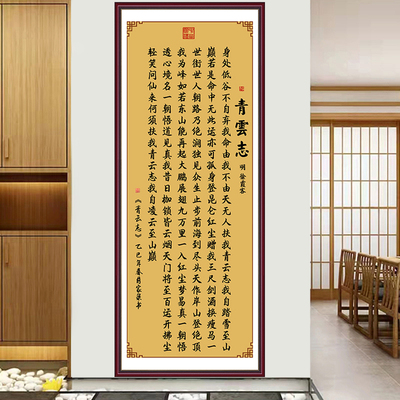 青雲志
明 徐霞客
身处低谷不自弃我命由我不由天无人扶我青云志我自踏雪至山
巅若是命中无此运亦可孤身登昆仑红尘赠我三尺剑酒换瘦马一
世衔世人朝路乃绝涧独见众生止步前海到尽头天作岸山登绝顶
我为峰如若东山能再起大鹏展翅九万里一入红尘梦易真一朝悟
透心境名一朝悟道见真我昔日枷锁皆云烟天门将至百运开拂尘
轻笑问仙来何须扶我青云志我自凌云至山巅
《青云志》乙巳年春月